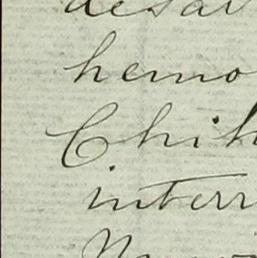 desar
hemo
Chih
interr